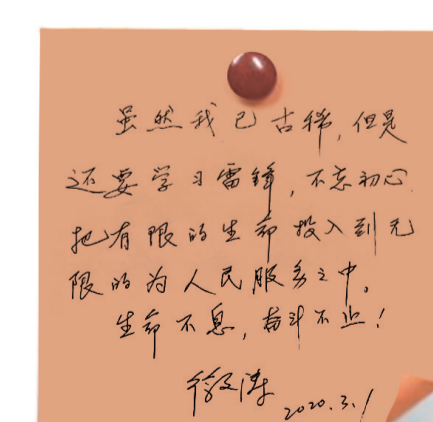 虽然我已古稀，但是
还要学习雷锋，不忘初心
把有限的生命投入到无
限的为人民服务之中。
生命不息，奋斗不止！
2020.3.1